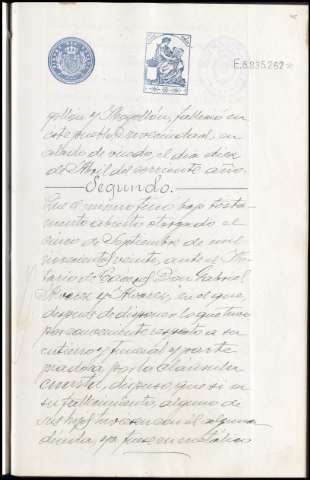 E.6.835.262
gollón y Mogollón, falleció en
este pueblo de su vecindad, en
estado de viudo, el día diez
de Abril del corriente año.
Segundo.
Que el mismo tuvo bajo testa-
mento abierto otorgado el
cinco de Septiembre de mil
novecientos veinte, ante el No-
tario de Don Gabriel
Alvarez y Alvarez, en el que,
después de disponer lo que tuvo
por conveniente respecto a su
entierro y funeral y parte
piadosa, por la cláusula
cuarta, dispuso que si a
su fallecimiento, alguno de
sus hijos tuviera con él alguna
deuda, ya fuese en metálico